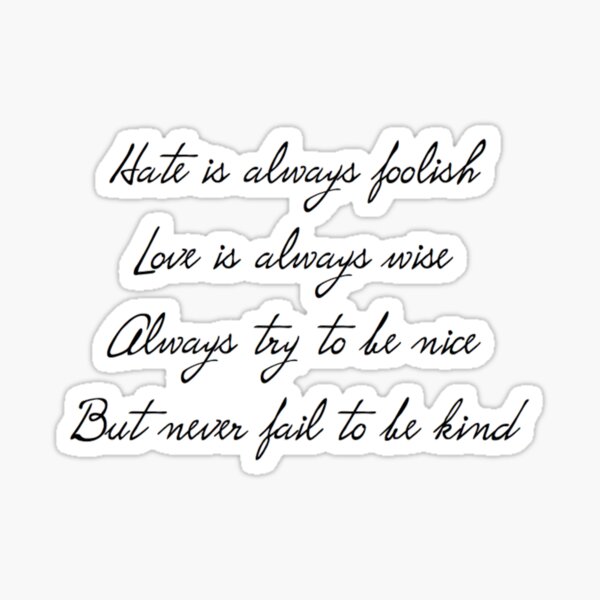 Hate is always foolish
Love is always wise
Always try to be nice
But never fail to be kind